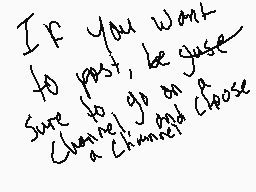 If you want
to post, be
sure to go on a
Channel and choose
a Channel